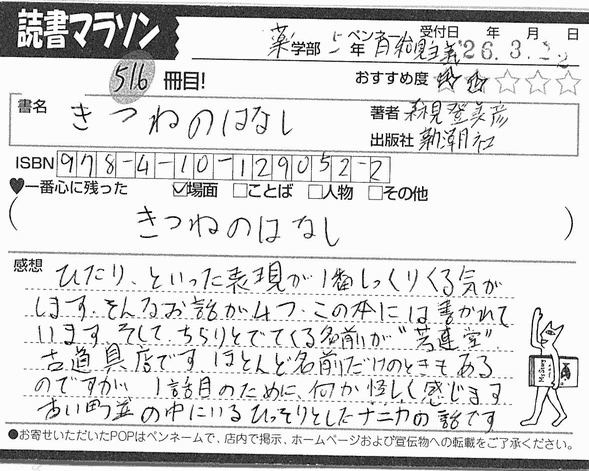 読書マラソン
薬学部 5年 ペンネーム 自稲見主義 受付日 '26年 3.月 22日
516 冊目!
おすすめ度 ★★☆☆☆
書名 きつねのはなし
著者 森見登美彦
出版社 新潮社
ISBN 978-4-10-129052-2
♥一番心に残った ☑場面 □ことば □人物 □その他
( きつねのはなし )
感想 ひたり、といった表現が1番しっくりくる気が
します。そんなお話が4つ、この本には書かれて
います。そして、ちらりとでてくる名前が“芳蓮堂”
古道具店です。ほとんど名前だけのときもある
のですが、1話目のために、何か怪しく感じます
古い町並の中にいるひっそりとしたナニカの話です
●お寄せいただいたPOPはペンネームで、店内で掲示、ホームページおよび宣伝物への転載をご了承ください。